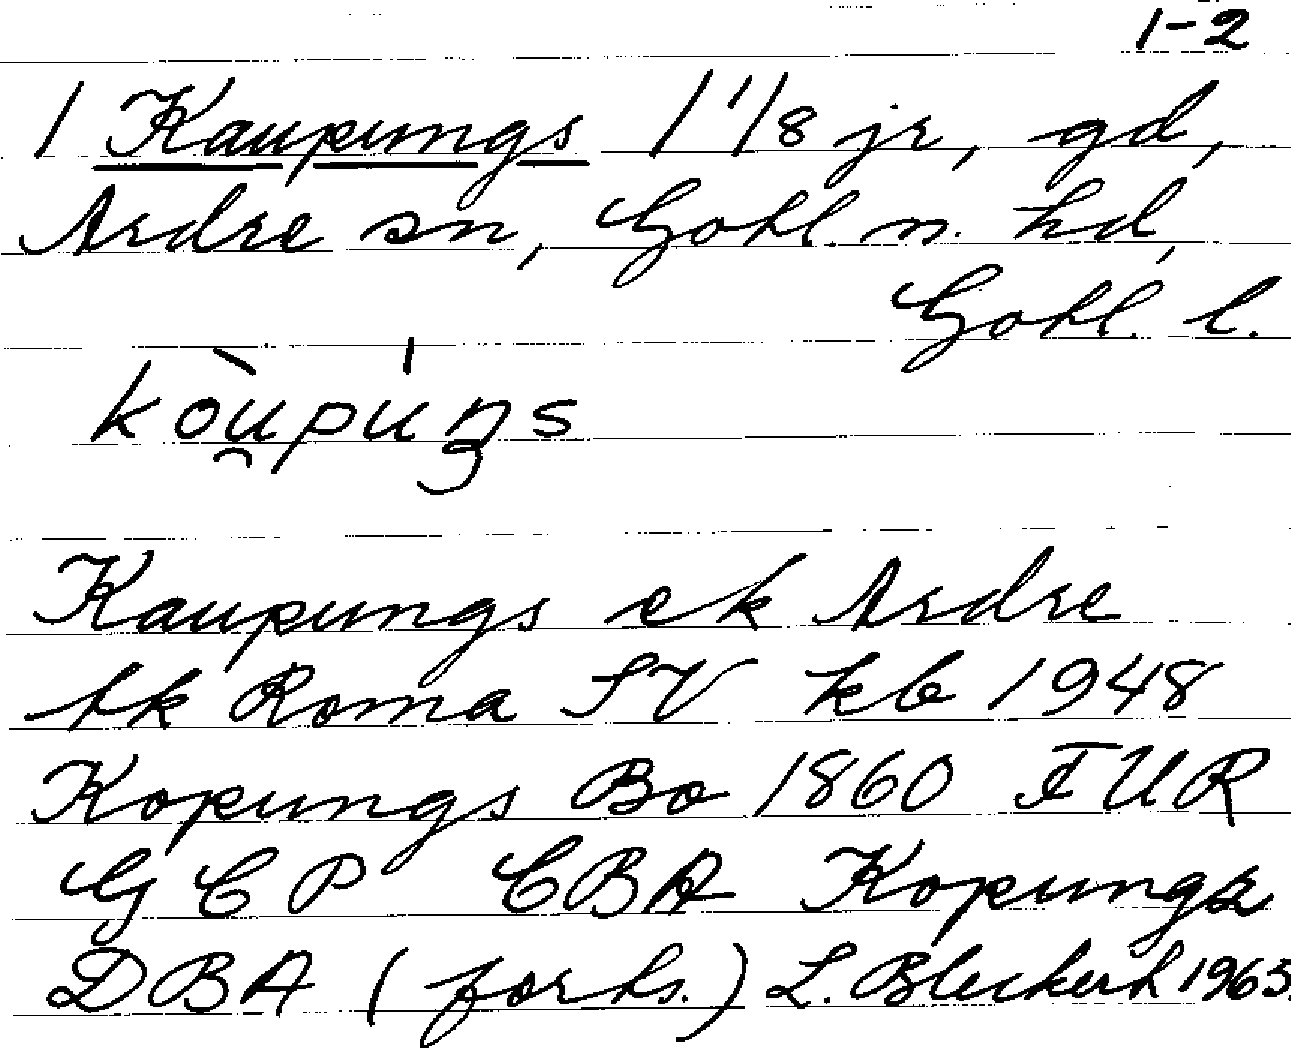 1-2
1 Kaupungs 1 1/8 jr, gd,
Ardre sn, Gotl. n. hd,
Gotl. l.
kòu̯púŋs
Kaupungs ek Ardre
tk Roma SV kb 1948
Kopungs Bo 1860 FUR
GCP CBA Kopungz
DBA (forts.) L. Bleckert 1963.